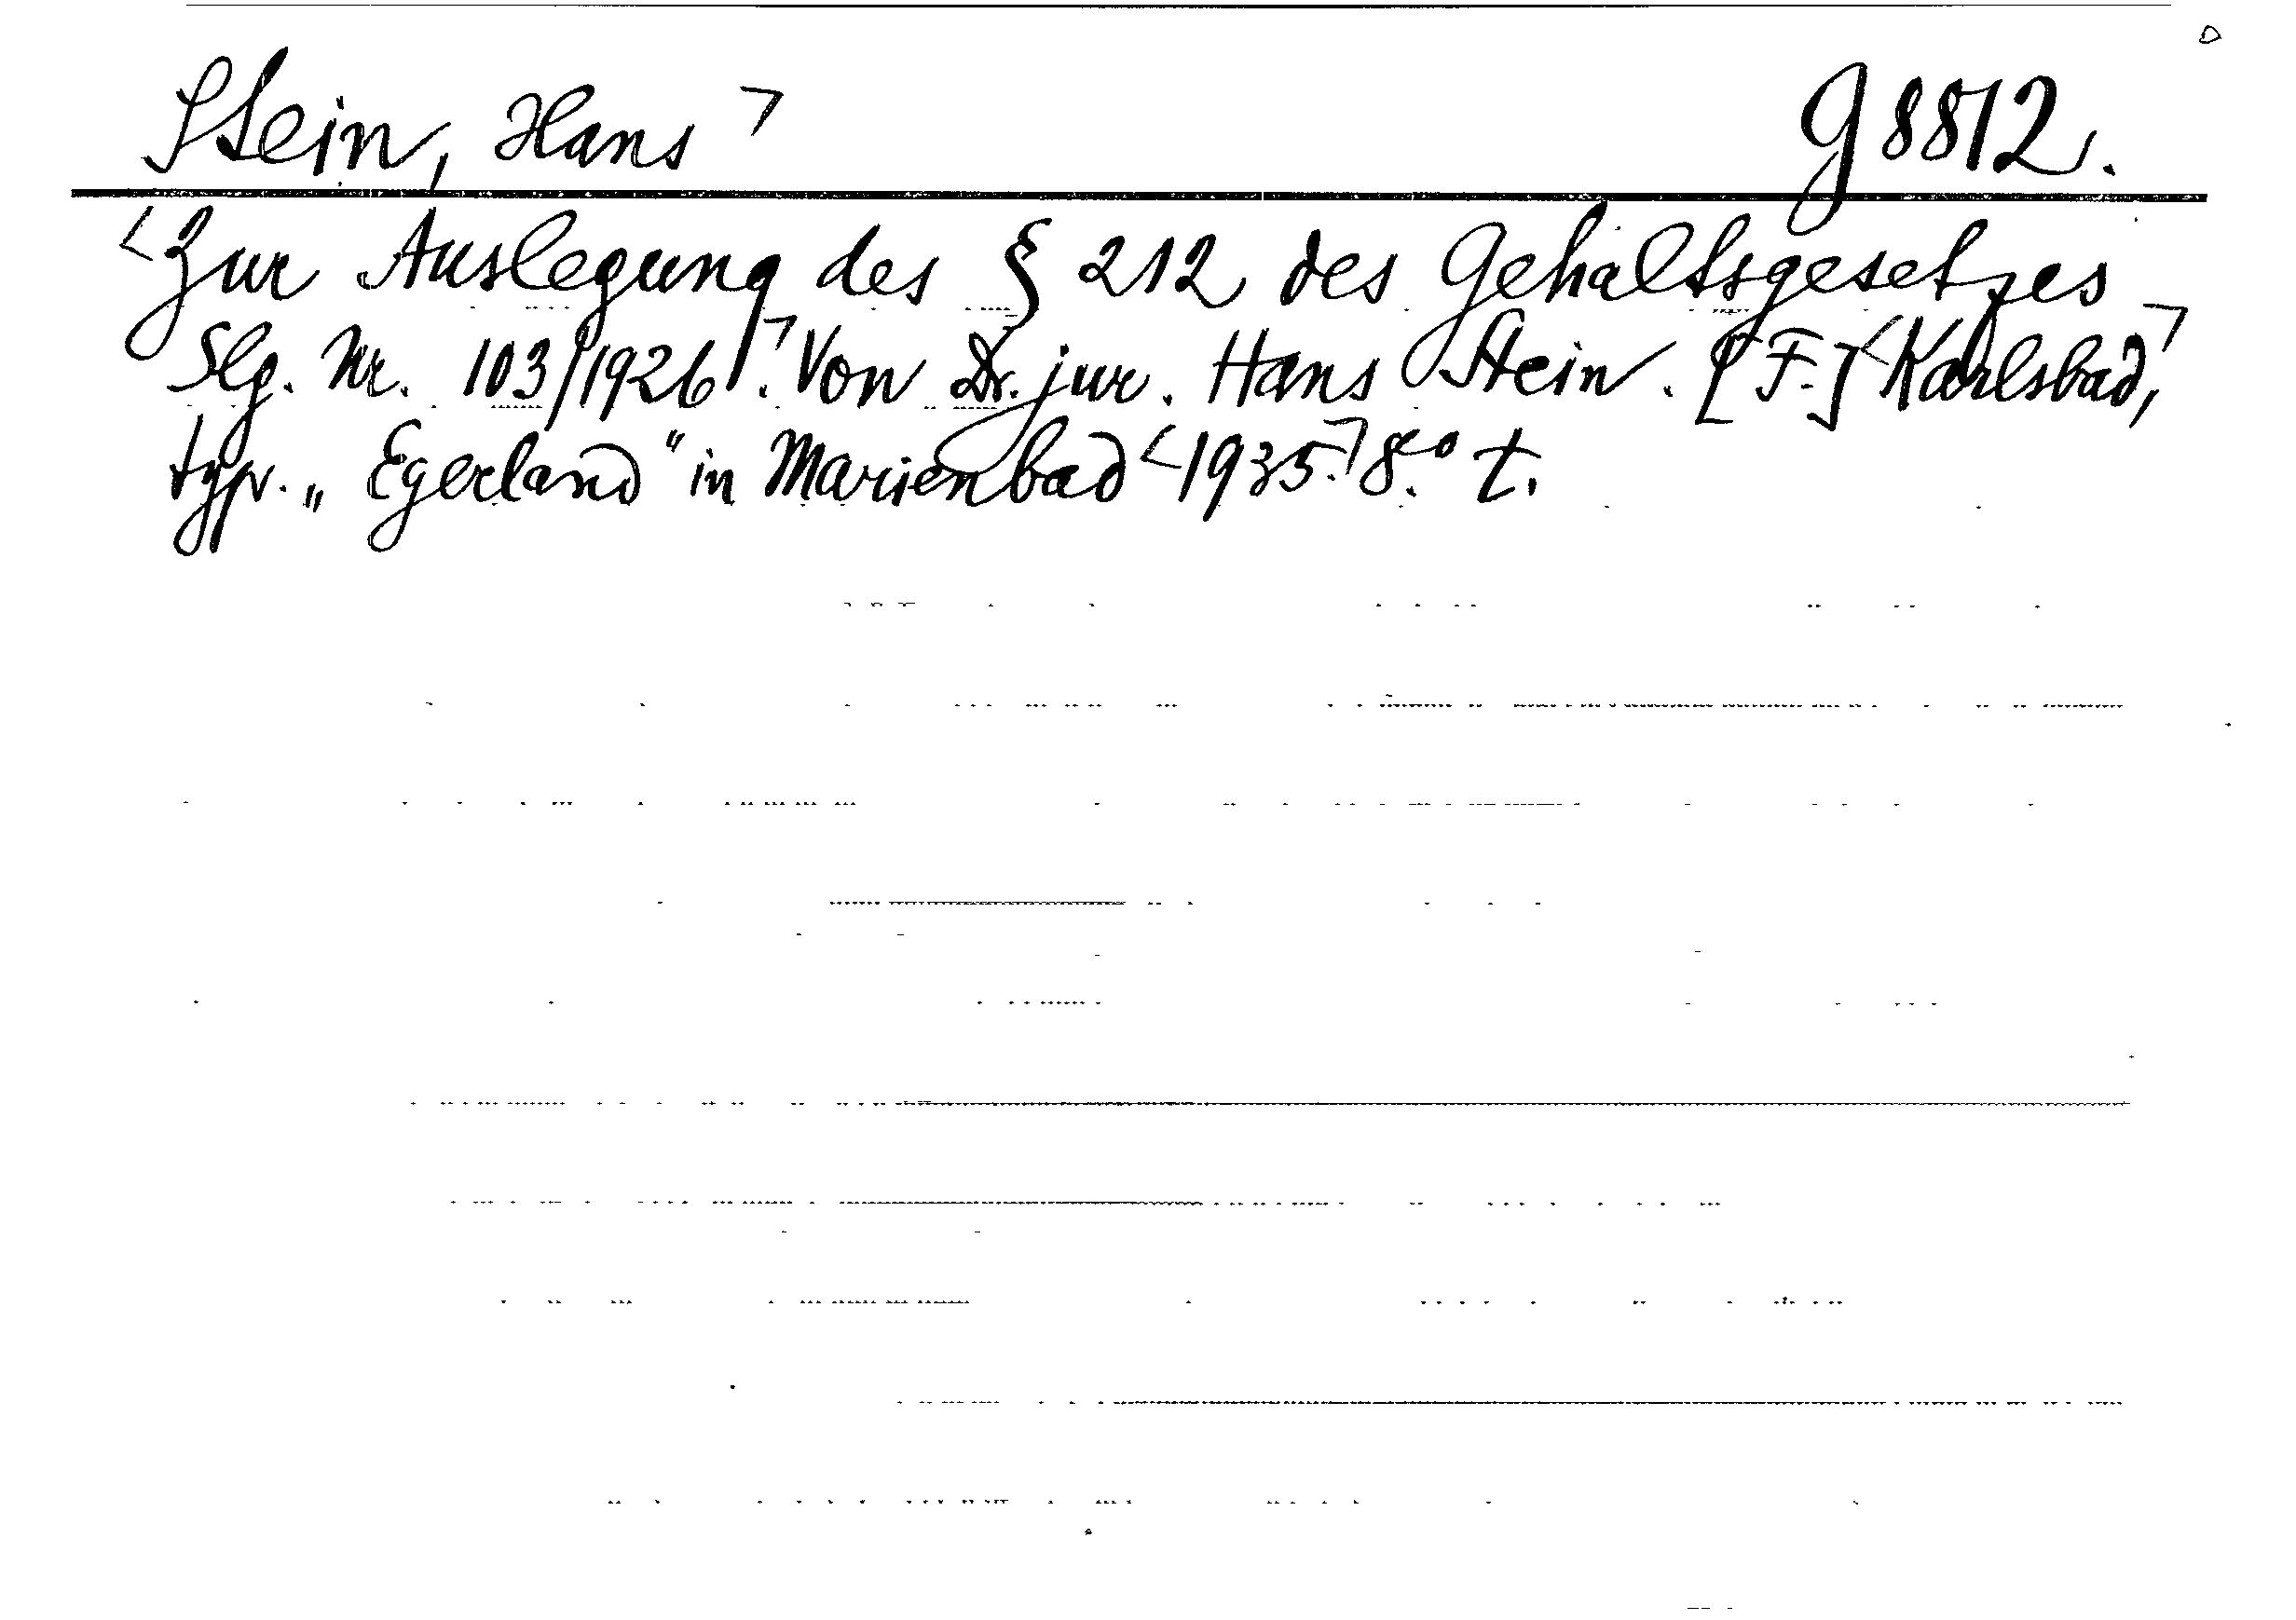 Stein, Hans ⌝ g 8812.
<Zur Auslegung des § 212 des Gehaltsgesetzes
Slg. Nr. 103/1926⌝. Von Dr. jur. Hans Stein. [F.] <Karlsbad,⌝
typ. „Egerland" in Marienbad <1935.⌝ 8.° t.